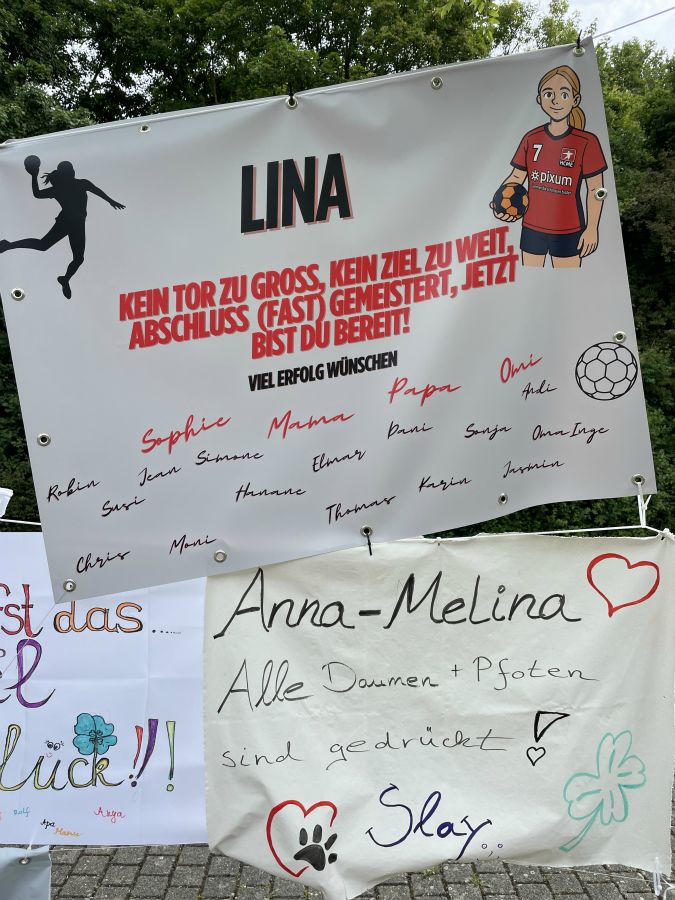 LINA
7
HCME
pixum
KEIN TOR ZU GROSS, KEIN ZIEL ZU WEIT,
ABSCHLUSS (FAST) GEMEISTERT, JETZT
BIST DU BEREIT!
VIEL ERFOLG WÜNSCHEN
Sophie Mama Papa Omi
Robin Jean Simone Elmar Dani Sonja Andi
Susi Hanane Thomas Karin Jasmin Oma Inge
Chris Moni
das...
Glück!!
Rolf
Opa
Manu
Anna-Melina
Alle Daumen + Pfoten
sind gedrückt!
Slay